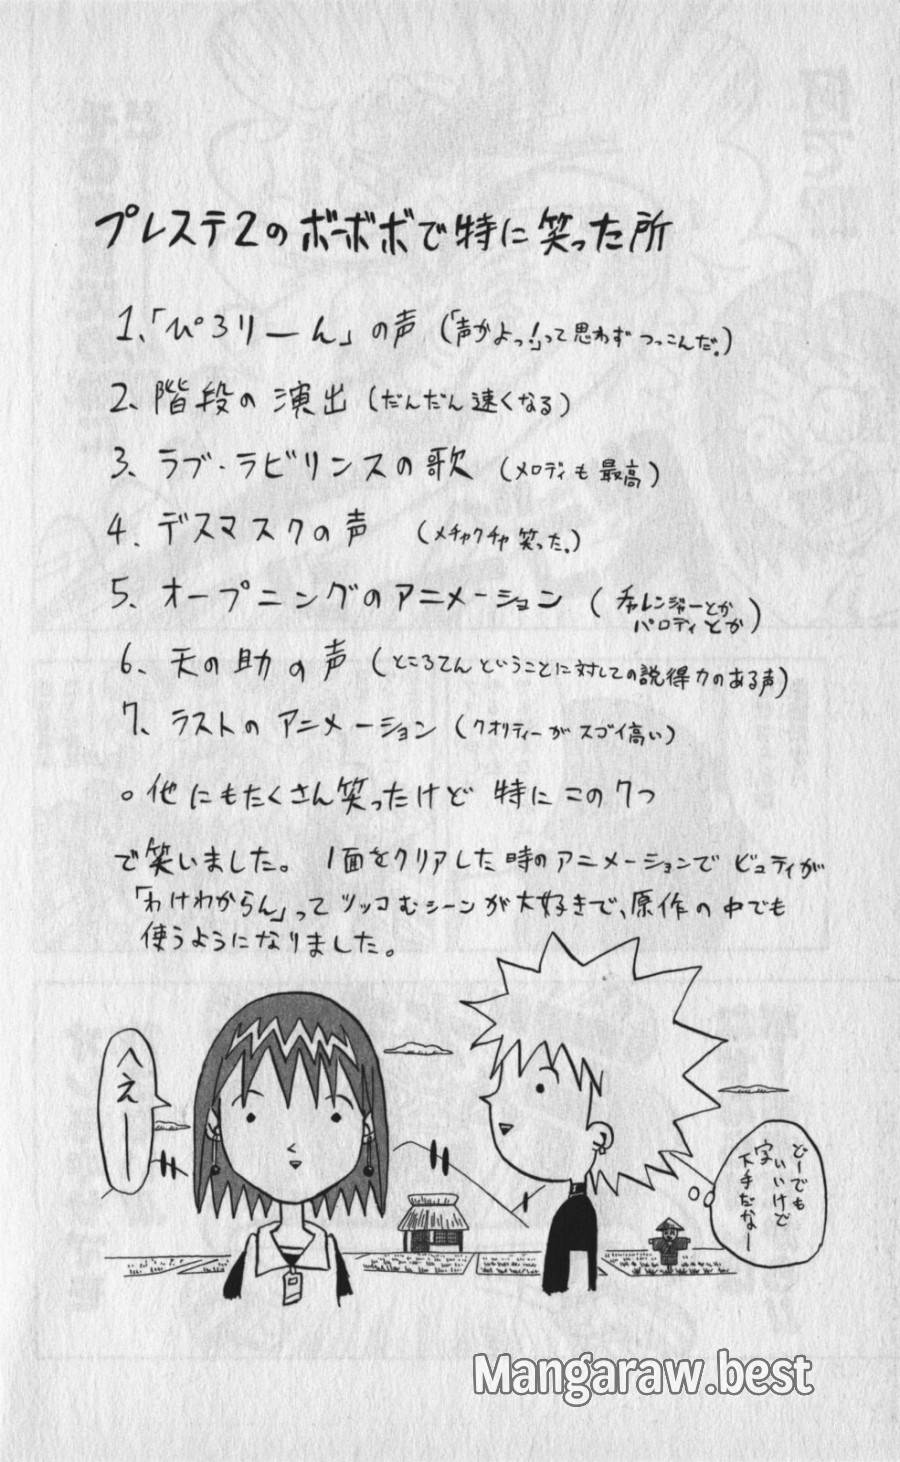 プレステ2のボーボボで特に笑った所
1、「ぴろりーん」の声（「声かよっ!」って思わずつっこんだ。）
2、階段の演出（だんだん速くなる）
3、ラブ・ラビリンスの歌（メロディも最高）
4、デスマスクの声（メチャクチャ笑った。）
5、オープニングのアニメーション（チャレンジャーとか
パロディとか）
6、天の助の声（ところてんということに対しての説得力のある声）
7、ラストのアニメーション（クオリティーがスゴイ高い）
○他にもたくさん笑ったけど特にこの7つ
で笑いました。1面をクリアした時のアニメーションでビュティが
「わけわからん」ってツッコむシーンが大好きで、原作の中でも
使うようになりました。
へえー
どーでも
いいけど
字
下手だなー
Mangaraw.best